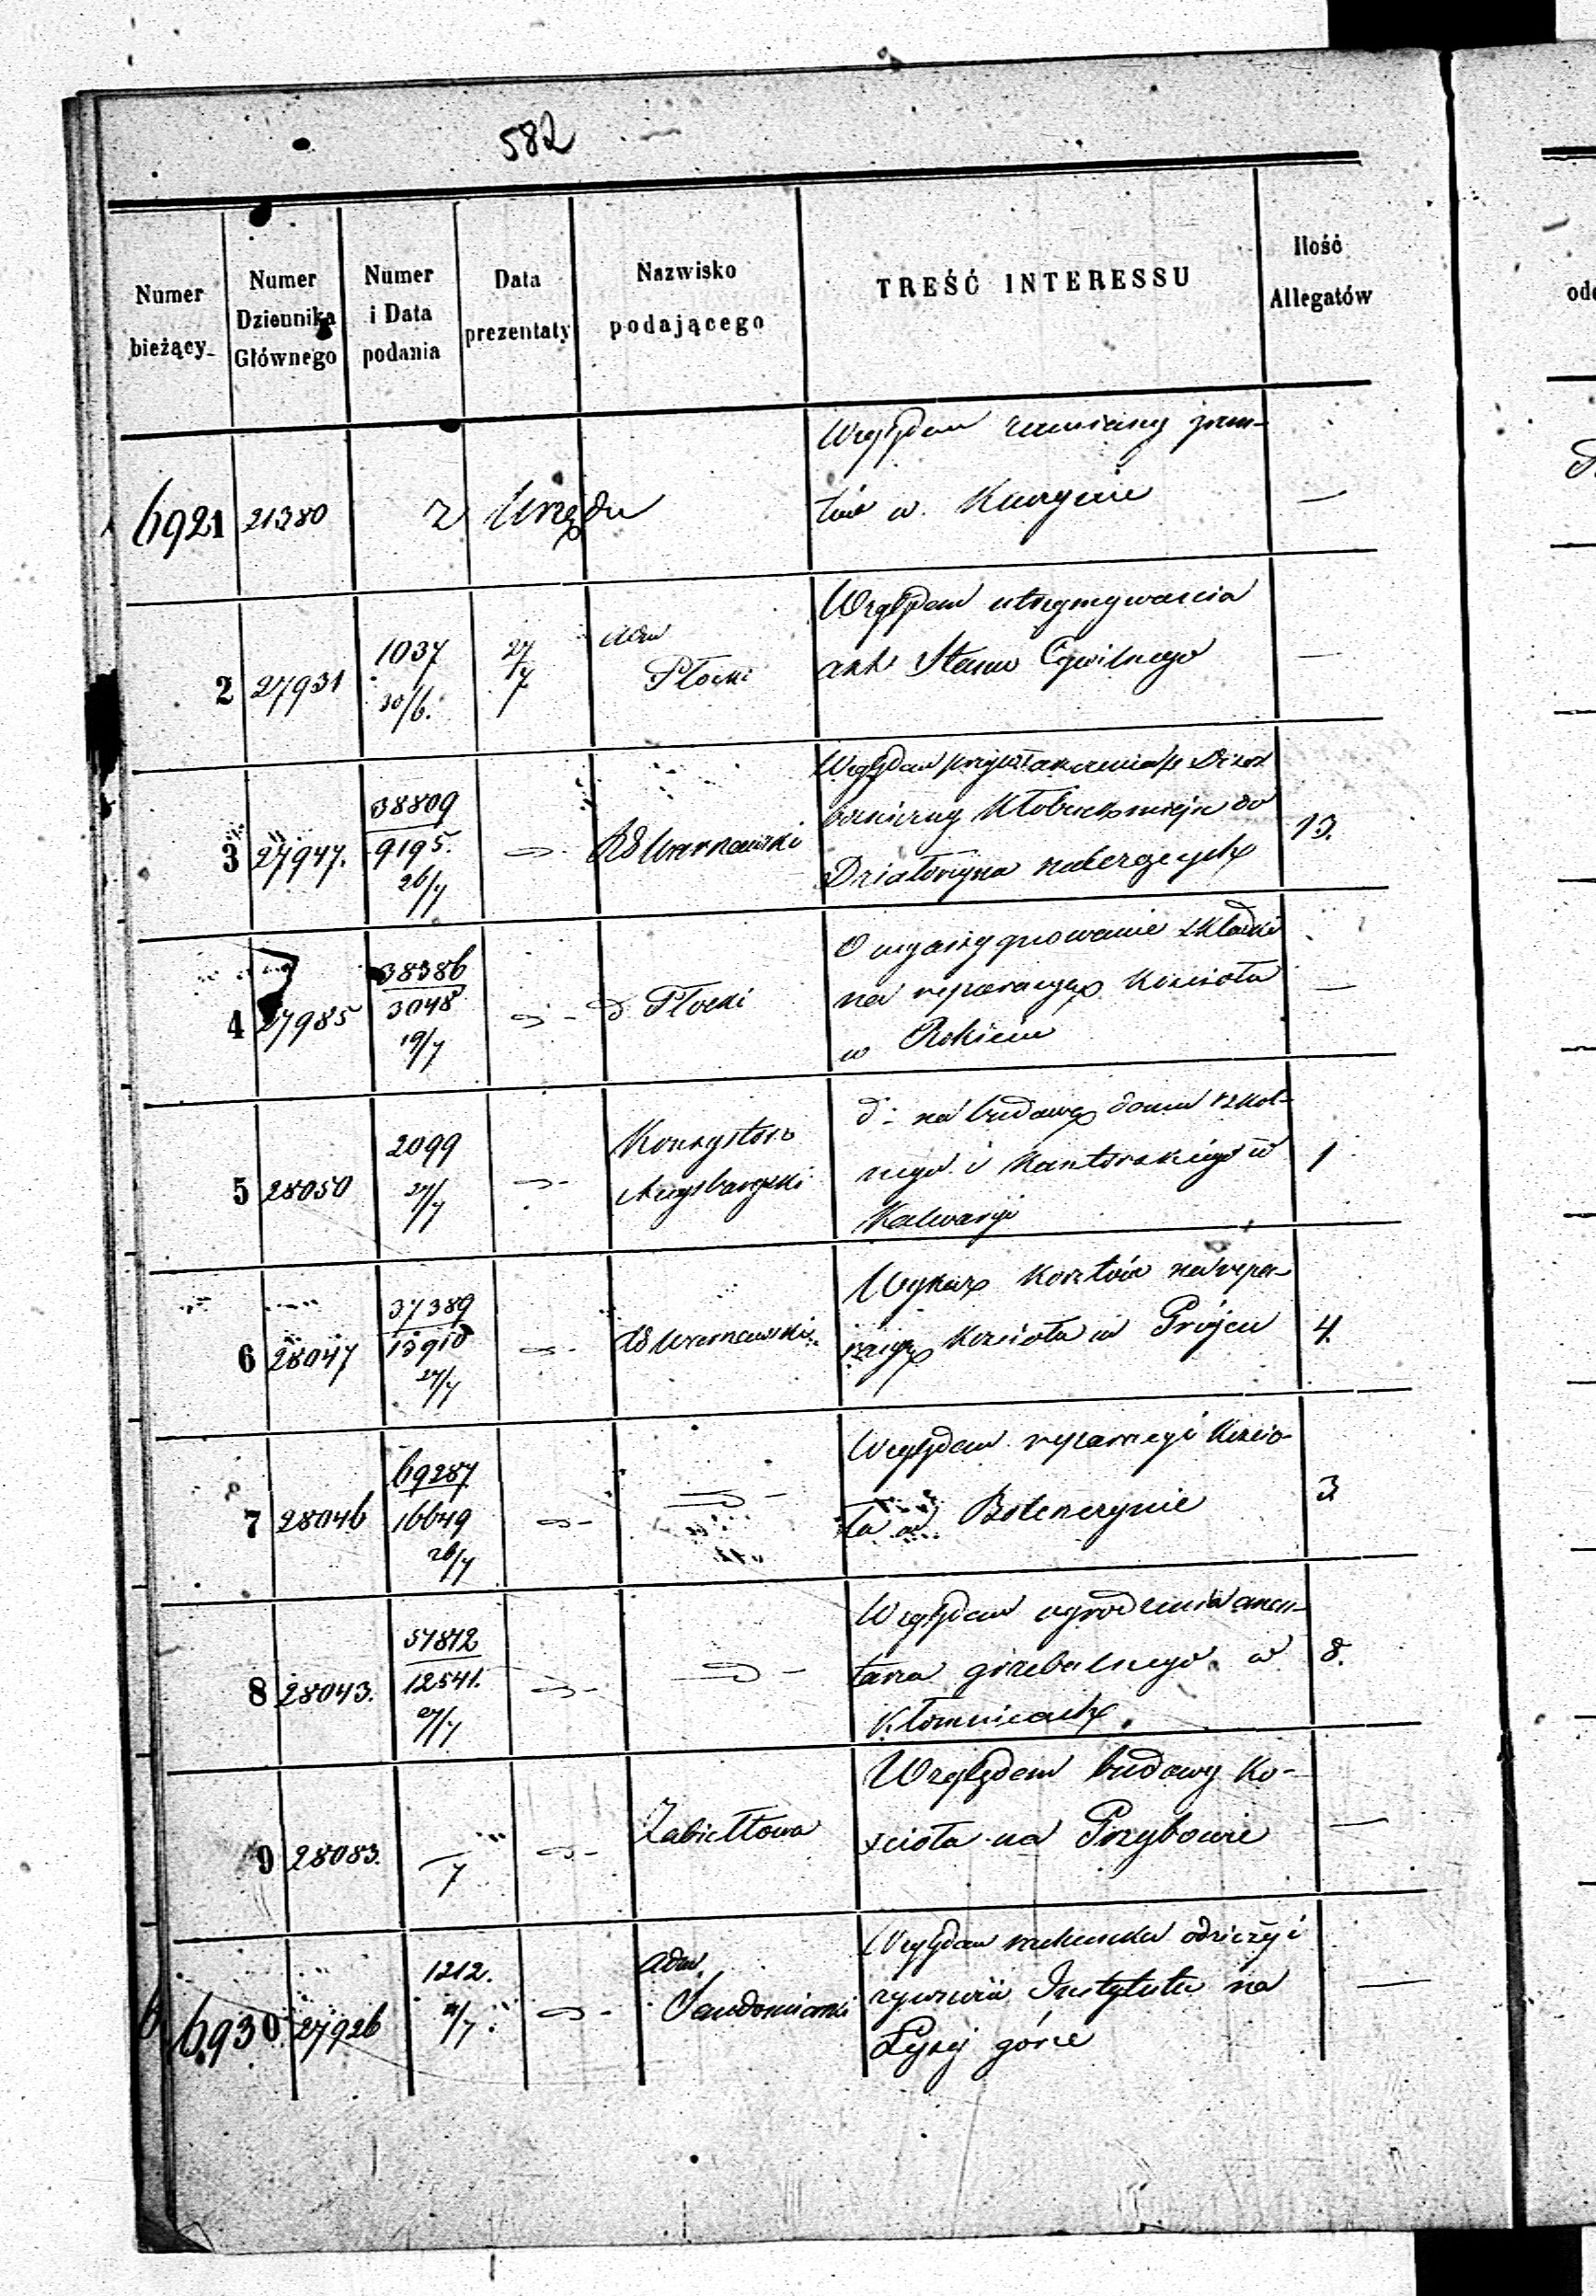 582
Numer bieżący
Numer Dziennika Głównego
Numer i Data podania
Data prezentaty
Nazwisko podającego
TREŚĆ INTERESSU
Ilość Allegatów
6921 21380 z Urzędu Względem zamiany grun-
tów w —
2 27931 1037 30/6. 27/7 Adm Płocki Względem utrzymywania
akt Stanu Cywilnego —
3 27947. 38809 9195. 26/7 RG Warszawski Względem
Kłobucko do
Działoszyna należących 13.
4 27985 38386 3048 19/7 d Płocki O wyasygnowanie składki
na reparacyą Kościoła
w Rokiciu —
5 28050 2099 27/7 Konsystorz Augsburgski d: na budowę domu szkol-
nego i Kantorskiego w
Kalwaryi 1
6 28047 37389 13910 27/7 RG Warszawski Wykaz kosztów na repa-
racyą Kościoła w Grójcu 4.
7 28046 69287 16649 26/7 Względem reparacyi Kościo-
ła w 3
8 28043. 57812 12541. 27/7 Względem ogrodzenia cmen-
tarza grzebalnego w
Kłomnicach. 8.
9 28083. /7 Zabiełłowa Względem budowy Ko-
ścioła na Grzybowie —
6930 27926 1212. /7 Adm. Sandomierski Względem rachunku odzieży i
żywienia Instytutu na
Łysej górze —